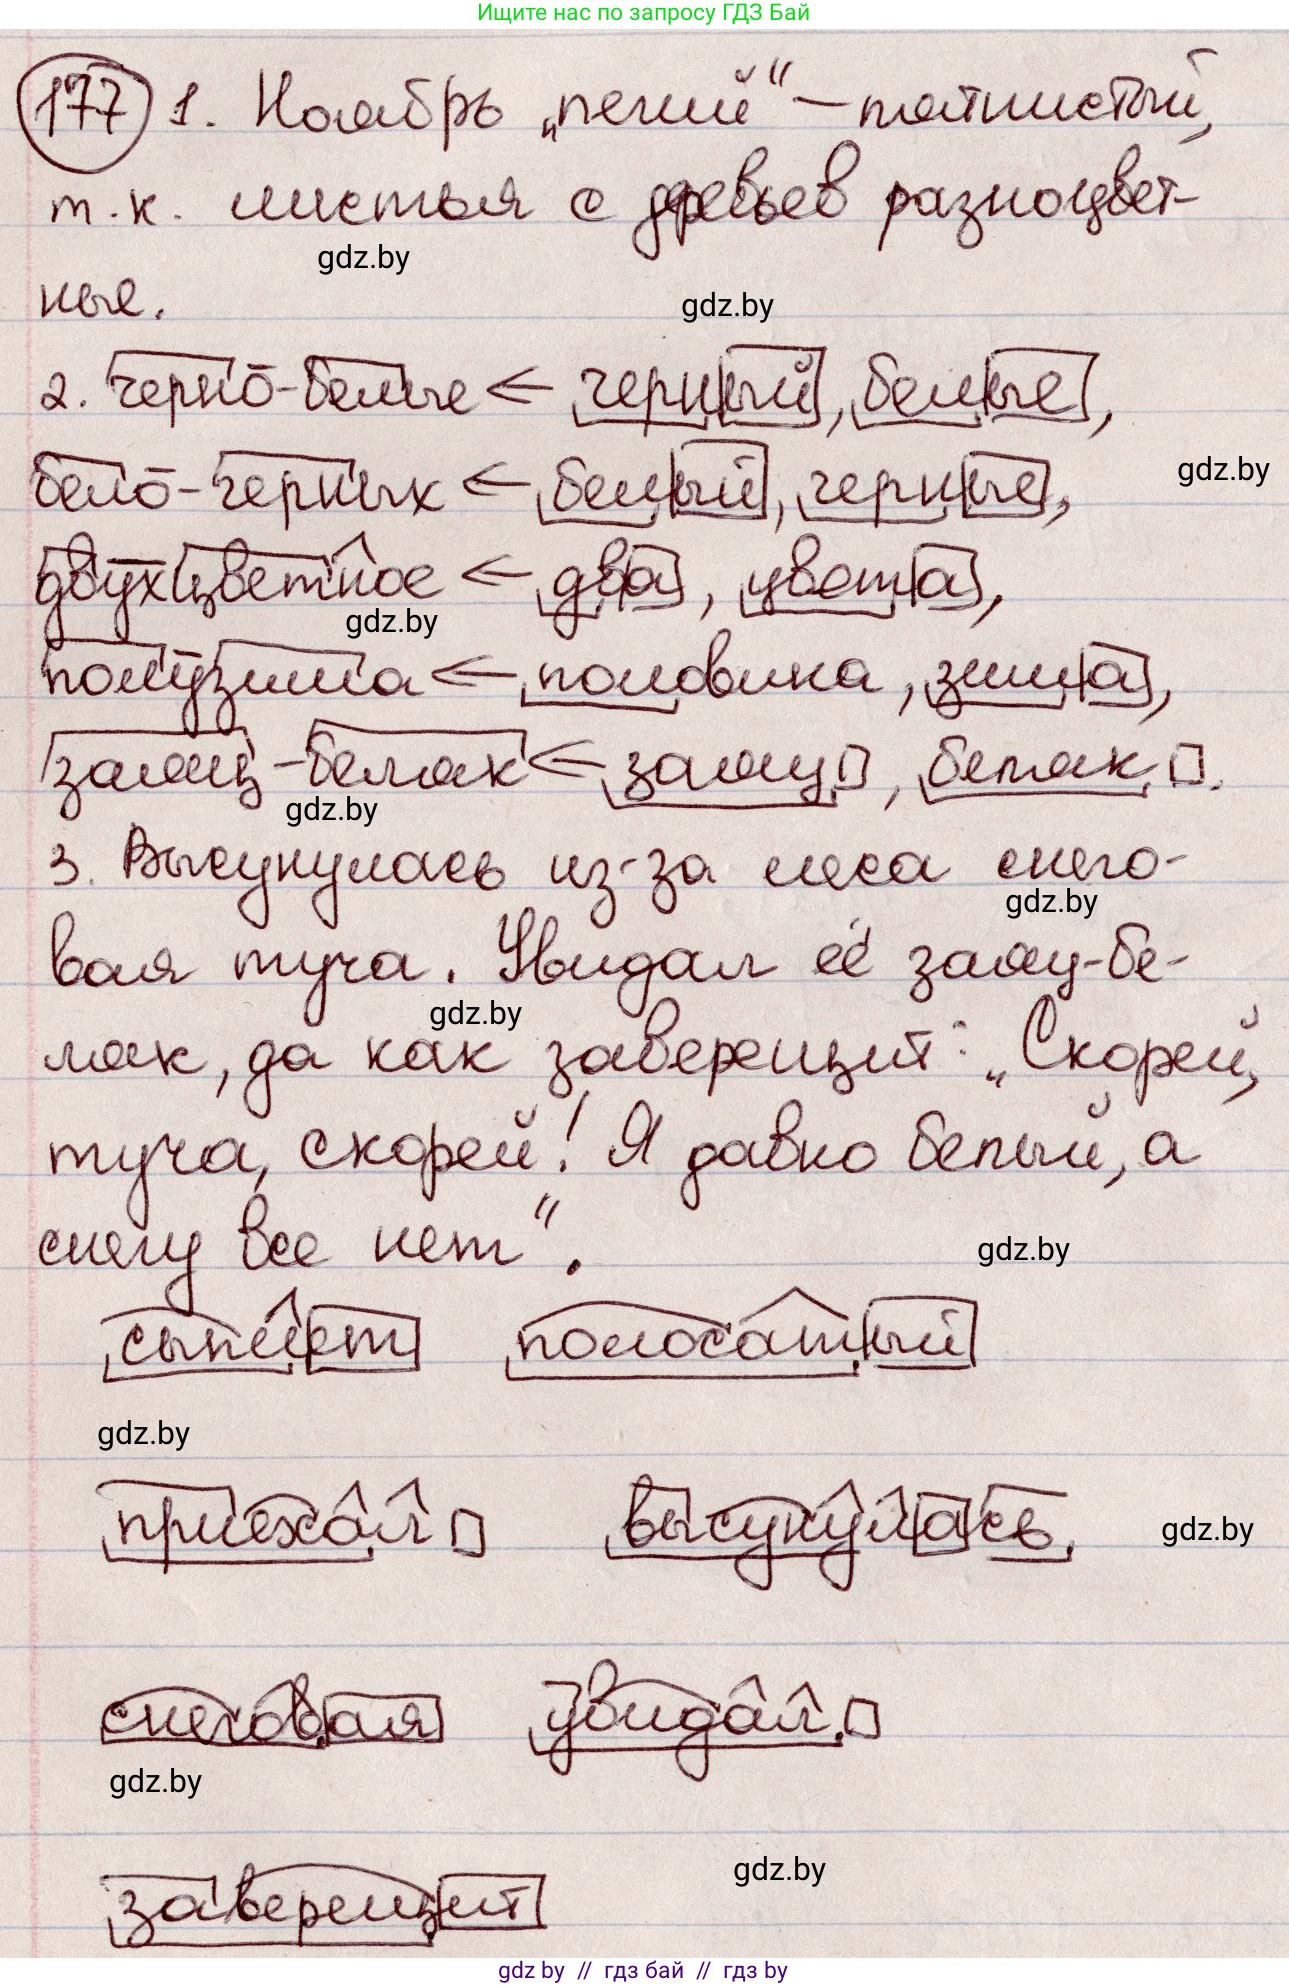 Ищите нас по запросу ГДЗ Бай
177 1. Ноябрь „пегий“ – пятнистый,
т.к. листья с деревьев разноцвет-
gdz.by
ные.
gdz.by
2. черно-белые ← черный, белые,
бело-черных ← белый, черные,
gdz.by
двухцветное ← два, цвета,
gdz.by
полузима ← половина, зима,
заяц-беляк ← заяц, беляк.
gdz.by
3. Высунулась из-за леса снего-
gdz.by
вая туча. Увидал её заяц-бе-
gdz.by
ляк, да как заверещит: „Скорей,
туча, скорей! Я давно белый, а
снегу все нет“.
gdz.by
сыплет полосатый
gdz.by
приехал высунулась
gdz.by
снеговая увидал
gdz.by
gdz.by
заверещит
gdz by // гдз бай // гдз by